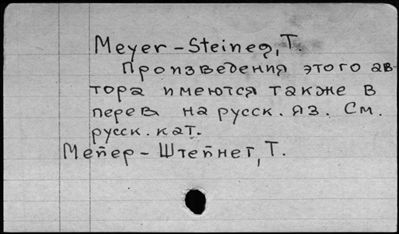 Meyer-Steineg, T.
Произведения этого ав-
тора имеются также в
перев на русск. яз. См.
русск. кат.
Мейер-Штейнег, Т.